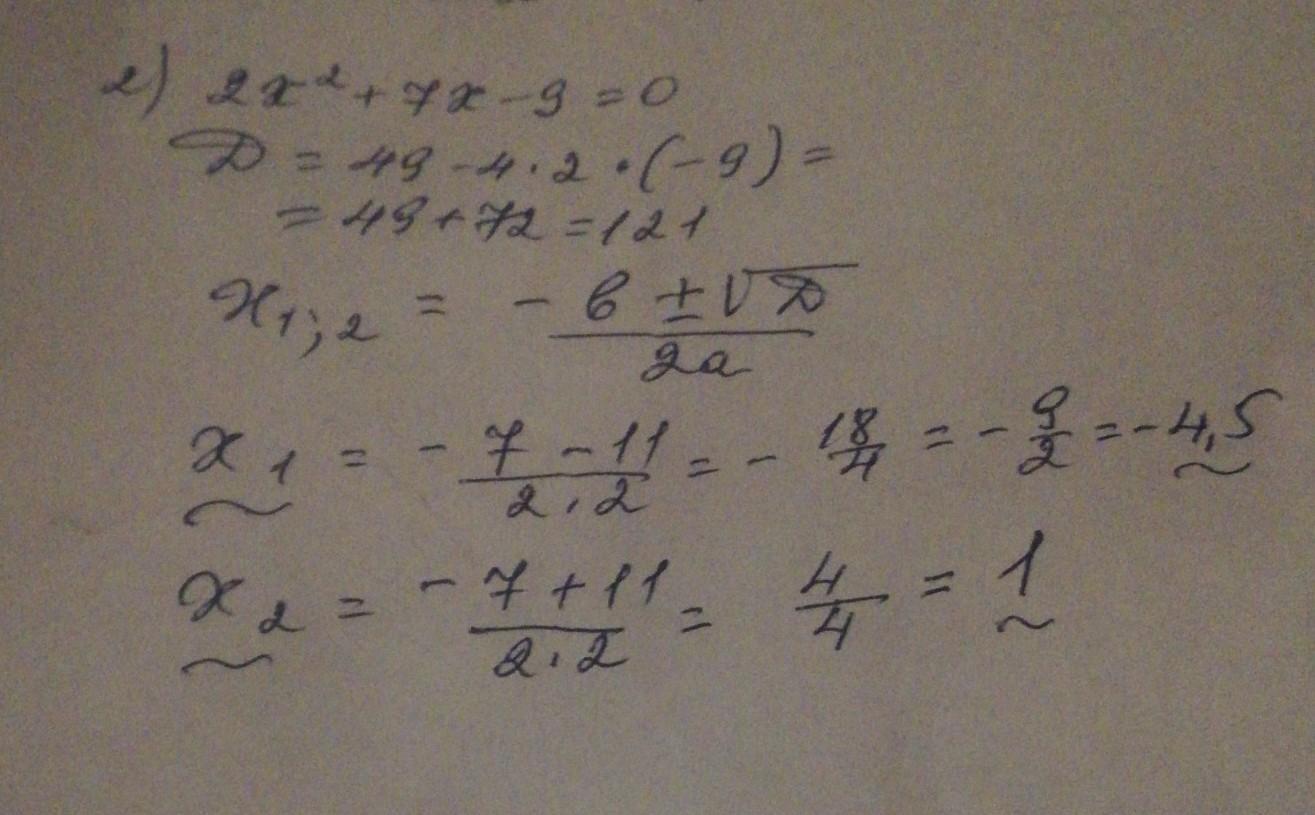 2) 2x² + 7x - 9 = 0
D = 49 - 4 · 2 · (-9) =
= 49 + 72 = 121
x₁;₂ = (-в ± √D) / 2a
x₁ = (-7 - 11) / (2 · 2) = - 18/4 = - 9/2 = - 4,5
x₂ = (-7 + 11) / (2 · 2) = 4/4 = 1